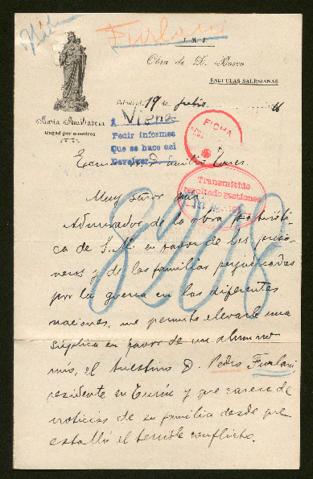 Furlani
J. M. J.
Obra de D. Bosco
ESCUELAS SALESIANAS
María Auxiliadora
19 de Julio 16
A Viena
Pedir informes
Que se hace así
Devolver
FICHA
Transmitido
resultado gestiones
Excmo. D. Emilio Torres
Muy señor mío:
Admirador de la obra humanitísti
ca de S. M. en favor de los prisio
neros y de las familias perjudicadas
por la guerra en las diferentes
naciones, me permito elevarle una
súplica en favor de un alumno
mío, el austriaco D. Pedro Furlani
residente en Turín y que carece de
noticias de su familia desde que
estalló el terrible conflicto.